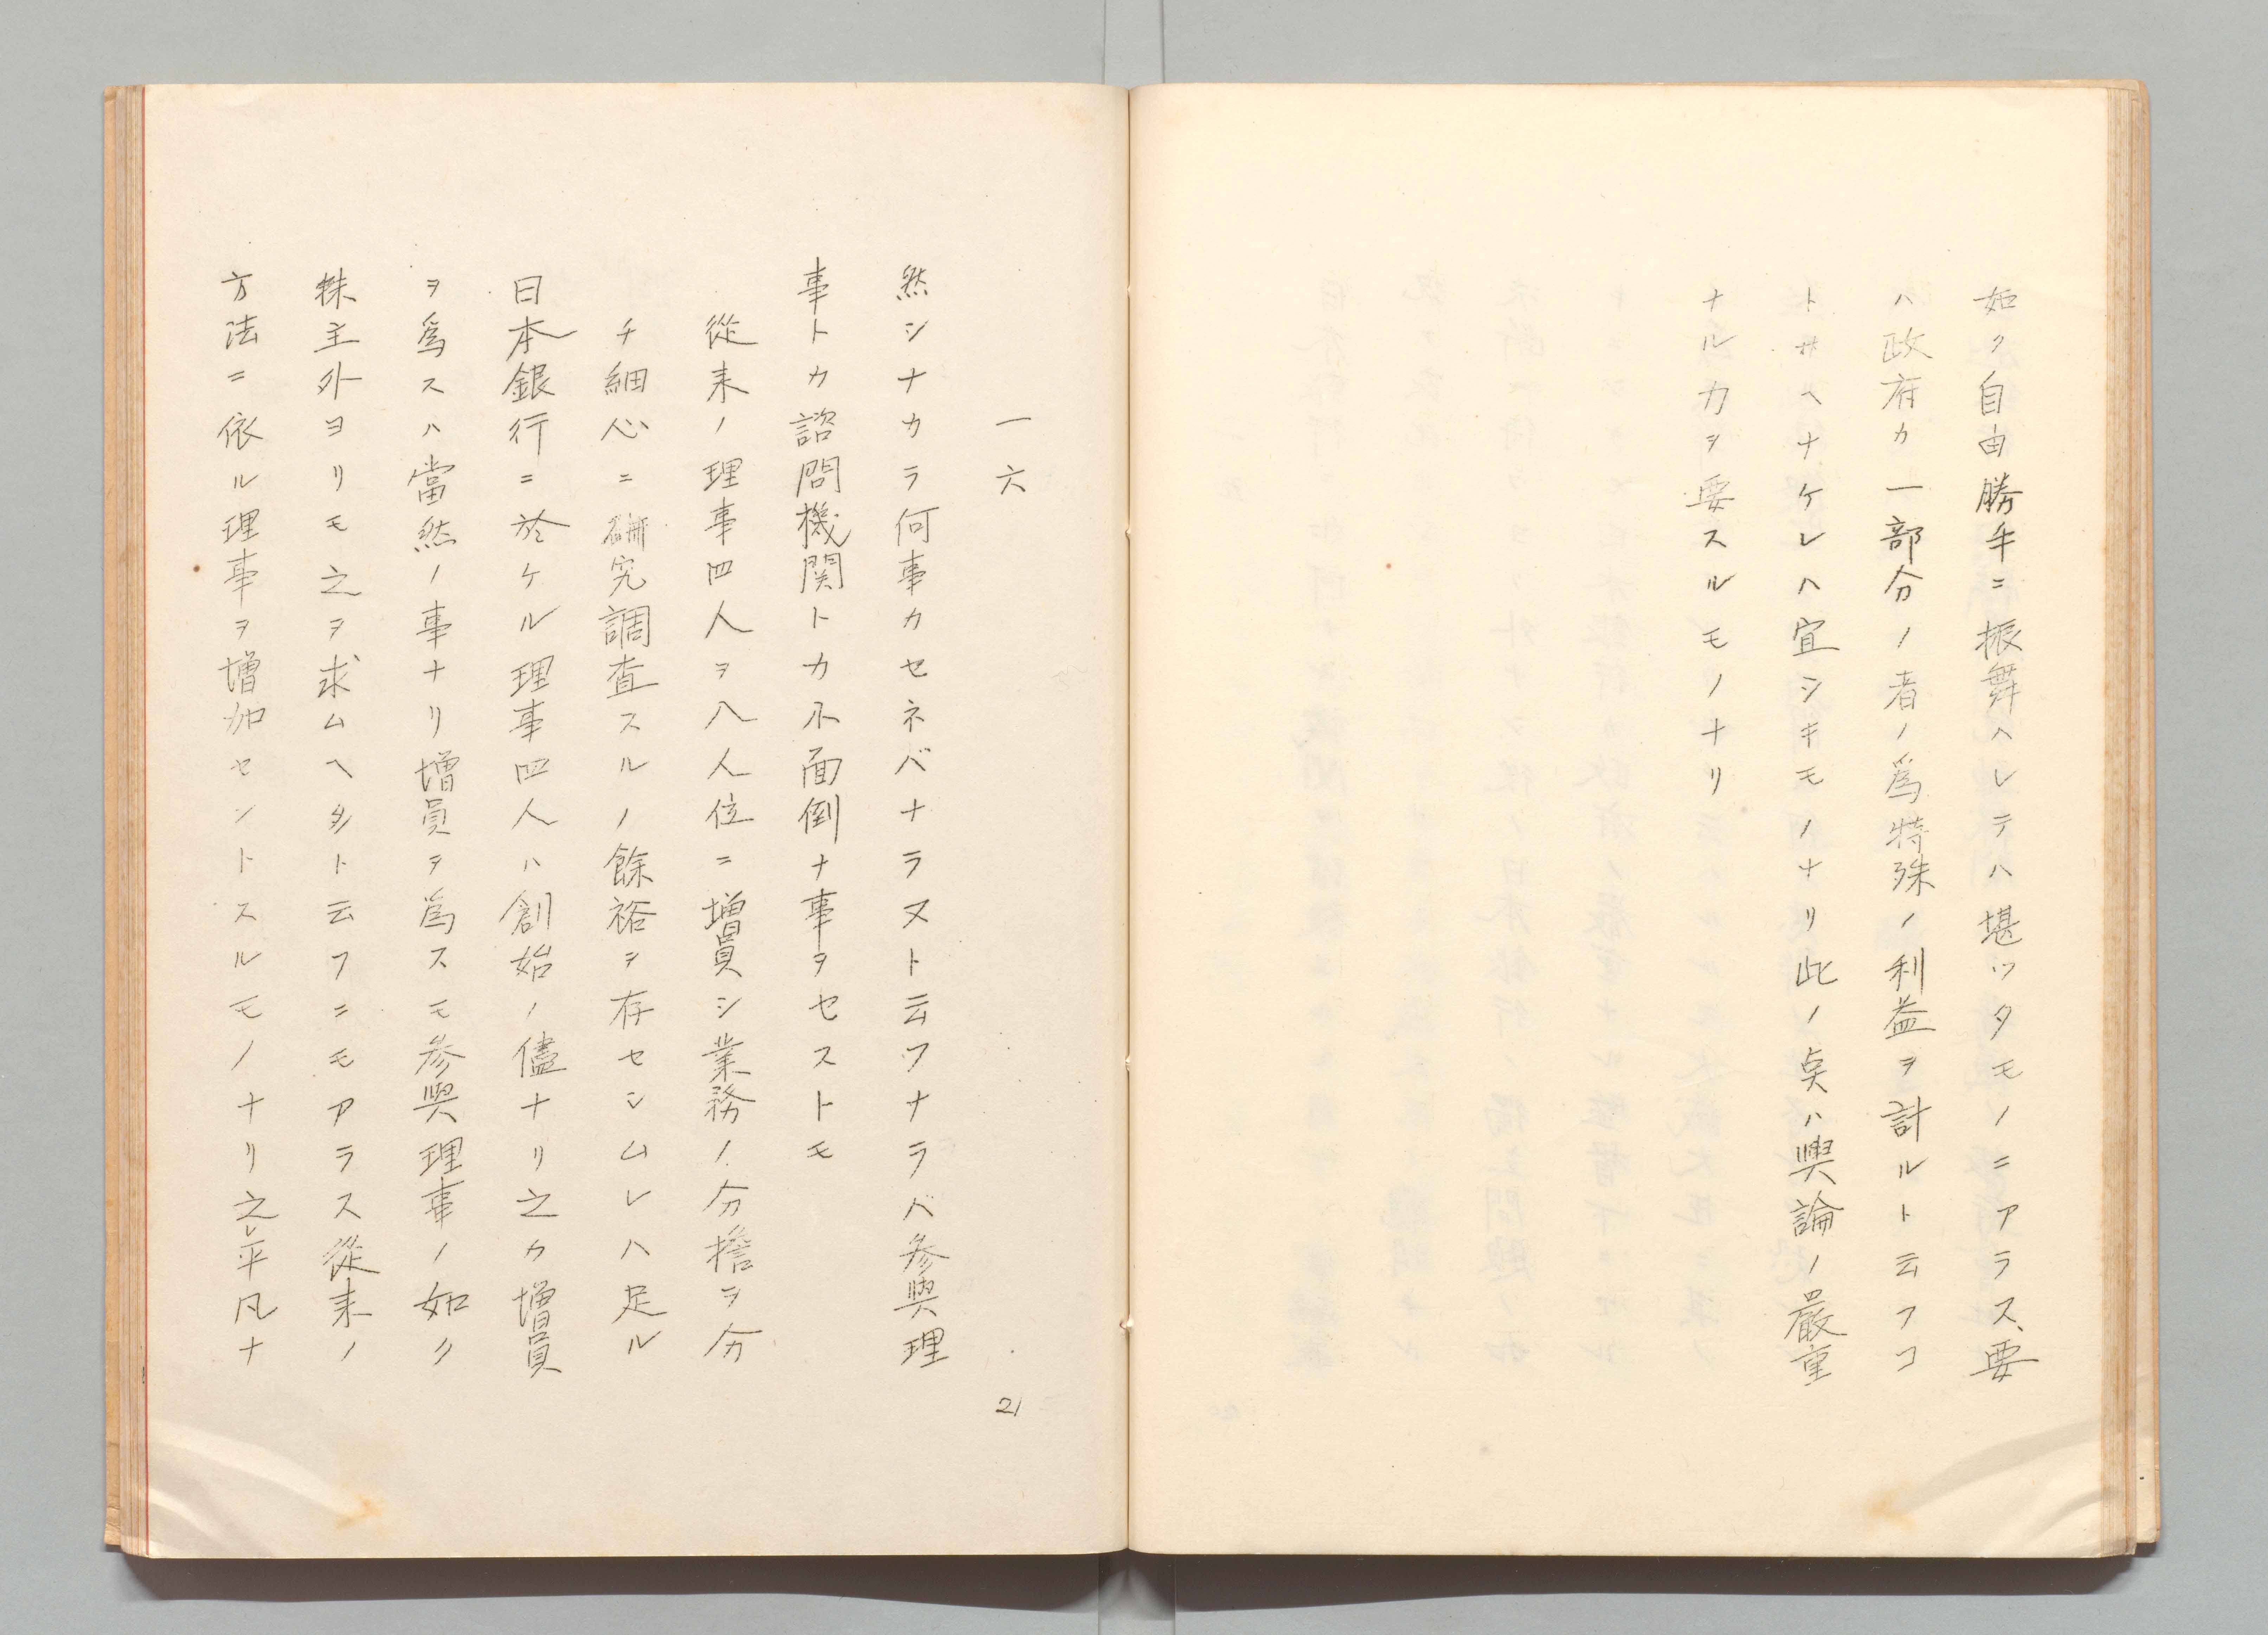 如ク自由勝手ニ振舞ハレテハ堪ツタモノニアラス、要
ハ政府カ一部分ノ者ノ爲特殊ノ利益ヲ計ルト云フコ
トサヘナケレハ宜シキモノナリ此ノ点ハ輿論ノ嚴重
ナル力ヲ要スルモノナリ
一六
然シナカラ何事カセネバナラヌト云フナラバ参與理
事トカ諮問機関トカ不面倒ナ事ヲセストモ
從来ノ理事四人ヲ八人位ニ増員シ業務ノ分擔ヲ分
チ細心ニ研究調査スルノ餘裕ヲ存センムレハ足ル
日本銀行ニ於ケル理事四人ハ創始ノ儘ナリ之カ増員
ヲ爲スハ當然ノ事ナリ増員ヲ爲スモ参與理事ノ如ク
株主外ヨリモ之ヲ求ムヘシト云フニモアラス從来ノ
方法ニ依ル理事ヲ増加セントスルモノナリ之レ平凡ナ
21